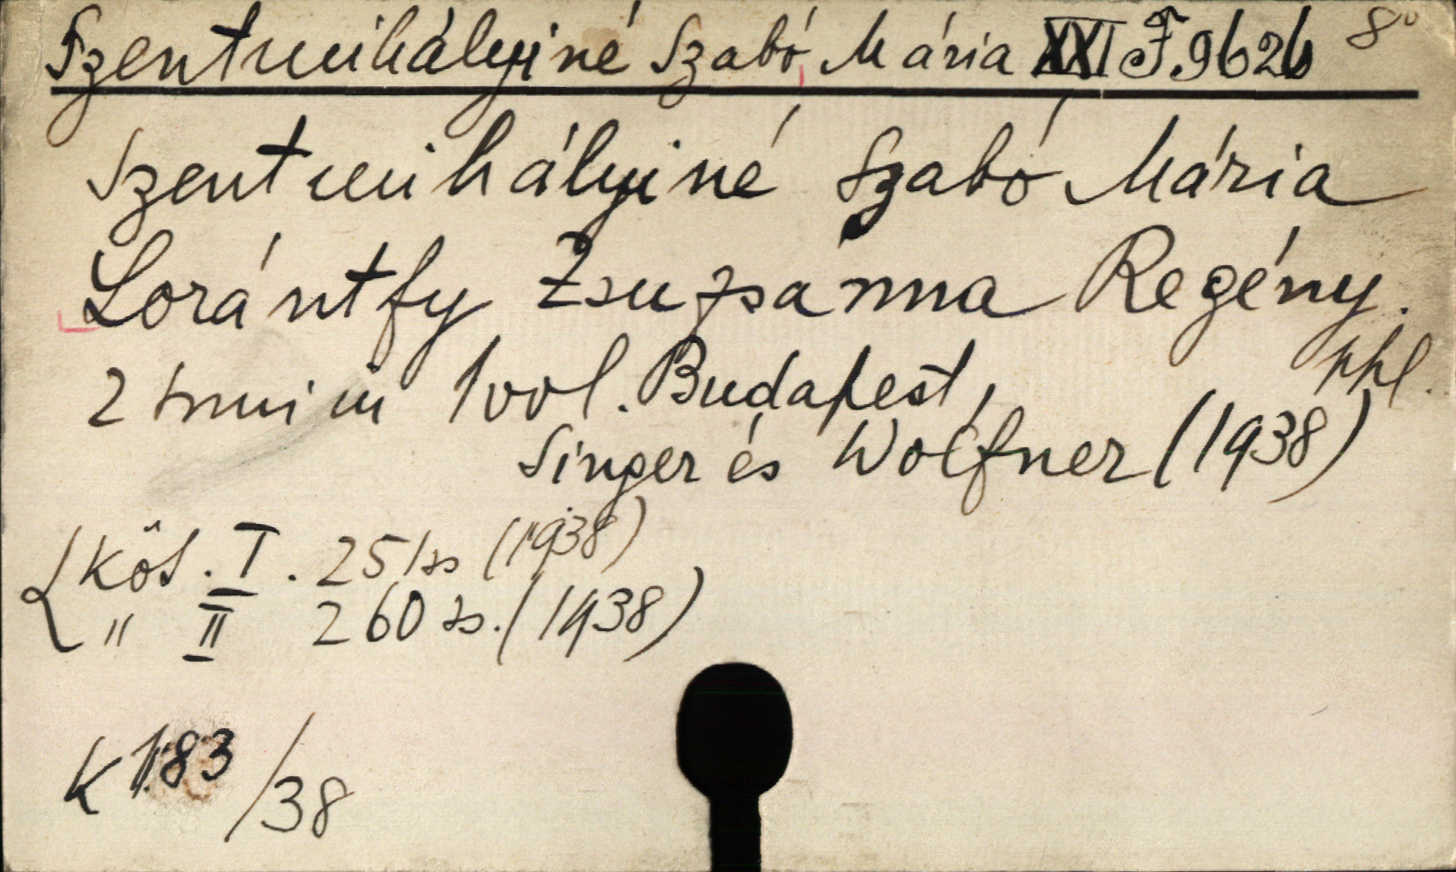 Szentmihályiné Szabó, Mária XXI F.9626 8°
Szentmihályiné Szabó Mária
Lorántfy Zsuzsánna Regény.
2 tomi in 1 vol. Budapest, ppl.
Singer és Wolfner (1938)
köt. I. 251 s (1938)
" II 260 s. (1938)
K 1183/38